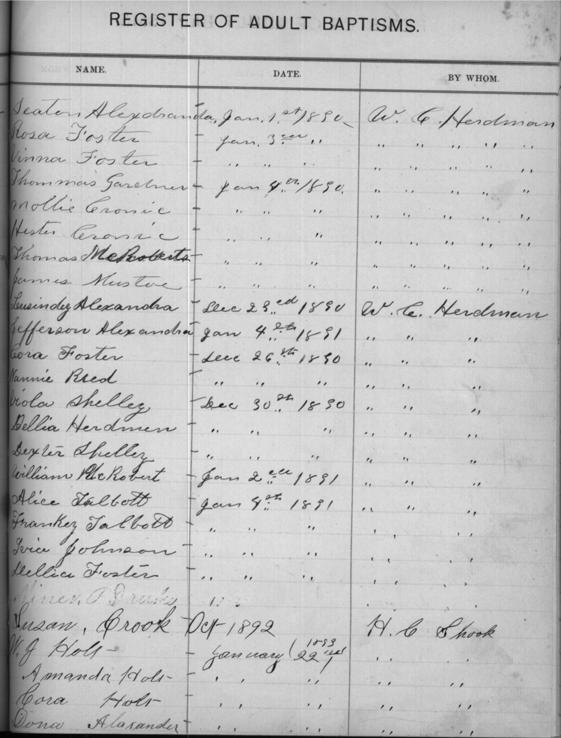 REGISTER OF ADULT BAPTISMS.
NAME. DATE. BY WHOM.
Seaton Alexdranda, Jan. 1st/1890 W. C. Herdman
Rosa Foster Jan. 3 " " " " "
Vinna Foster " " " " " " " "
Thommas Gardner Jan 4th/1890. " " " "
Mollie Cronic " " " " " " "
Hester Cronic " " " " " " "
Thomas McRoberts " " " " " " "
James " " " " " " "
Alexandra Dec 23ed 1890 W. C. Herdman
Jefferson Alexandra Jan 4th 1891 " " "
Cora Foster Dec 26th 1890 " " "
Nannie Reed " " " " " " "
Viola Shelley Dec 30th 1890 " " "
Dellia Herdmen " " " " " "
Dexter Shelley " " " " " "
William McRobert Jan 2 1891 " " "
Alice Talbott Jan 4th 1891 " " "
Frankey Talbott " " " " "
Johnson " " " " "
Foster " " " " "
Susan, Crook Oct 1892 H. C. Shook
W. J Holt January 22 1893 " "
Amanda Holt " " " " "
Cora Holt " " " " "
Dona Alaxander " " " " "